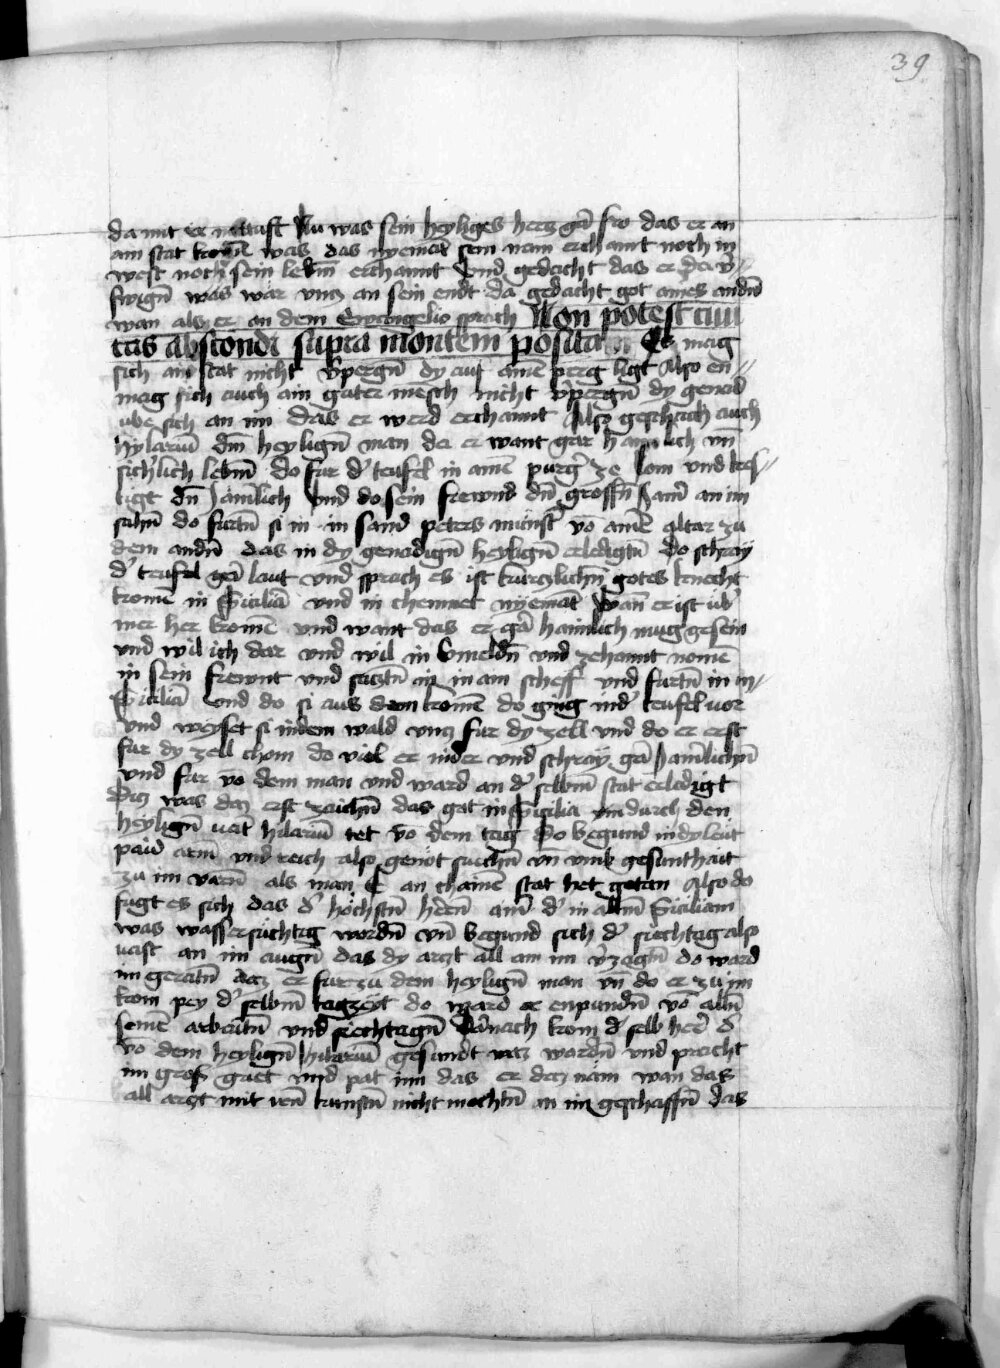 39
da mit er Nu was sein heyliges hercz gar fro das er an
ain stat komē was das nyemāt sein nam erchannt noch in
west noch sein lebm̄ erchannt Und gedacht das er da v̄ //
swign̄ was wār uncz an sein endt da gedacht got aines andn̄
wan als er an dem Ewangelio sprach Non potest ciui
tas abscondi supra montem posita Es mag
sich ain stat nicht v̄pergn̄ dy auf ainē perg ligt Also en //
mag sich auch ain guter mēsch nicht v̄pergn̄ dy genad
ube sich an im das er werd erchannt Also geschach auch
hylariū dm̄ heylign̄ man da er want gar haimlich un̄
sichlich lebm̄ do fur d' teufel in ainē purg' ze Rom und kes //
tigt dn̄ Jāmlich Und do sein frewnd dn̄ grossn̄ Jam̄ an im
sahn̄ do furtn̄ si in in sand peters munst' vō ainē altar zu
dem andn̄ das in dy genadign̄ heylign̄ erledigtn̄ Do schray
d' teufel gar laut und sprach es ist kurczlichn̄ gotes knecht
komē in Siciliā und in chennet nyemāt wan̄ er ist ub'
mer her komē und want das er gar haimlich mug gesein
und wil ich dar und wil in vmeldn̄ und zehannt nomē
in sein frewnt und saczt̄n in in ain scheff und furtn̄ in in //
Siciliā Und do si aus dem komē do ging in d' teufel vor
und weyset si in dem wald uncz fur dy zell und do er erst
fur dy zell chom do viel er nider und schray gar Jamlichn̄
und fur vō dem man und ward an d' selbm̄ stat erledigt
Dicz was daz erst zaichn̄ das got in Sicilia durch den
heylign̄ vat' hilariū tet Vō dem tag So begund in dy leut
paid' arm̄ und reich also genot suechn̄ vn̄ umb gesunthait
zu im varn̄ als man E an chainē stat het getan Also do
fugt es sich das d' hochstn̄ hern̄ ain' d' in allm̄ Siciliam
was wassersuchtig wordn̄ vn̄ begund sich d' siechtag also
vast an im augn̄ das dy arczt all an im v'zagtn̄ do ward
im geratn̄ daz er fur zu dem heylign̄ man vn̄ do er zu im
kom pey d' selbm̄ tagzeyt do ward er enpundn̄ vō allm̄
seinē arbaitn̄ und siechtagn̄ Darnach kom d' selb her' d'
vō dem heylign̄ hilariū gesundt was wordn̄ und pracht
im gross guet und pat inn das er daz nam wan das
all arczt mit iren kunstn̄ nicht mochtn̄ an im geschaffn̄ das